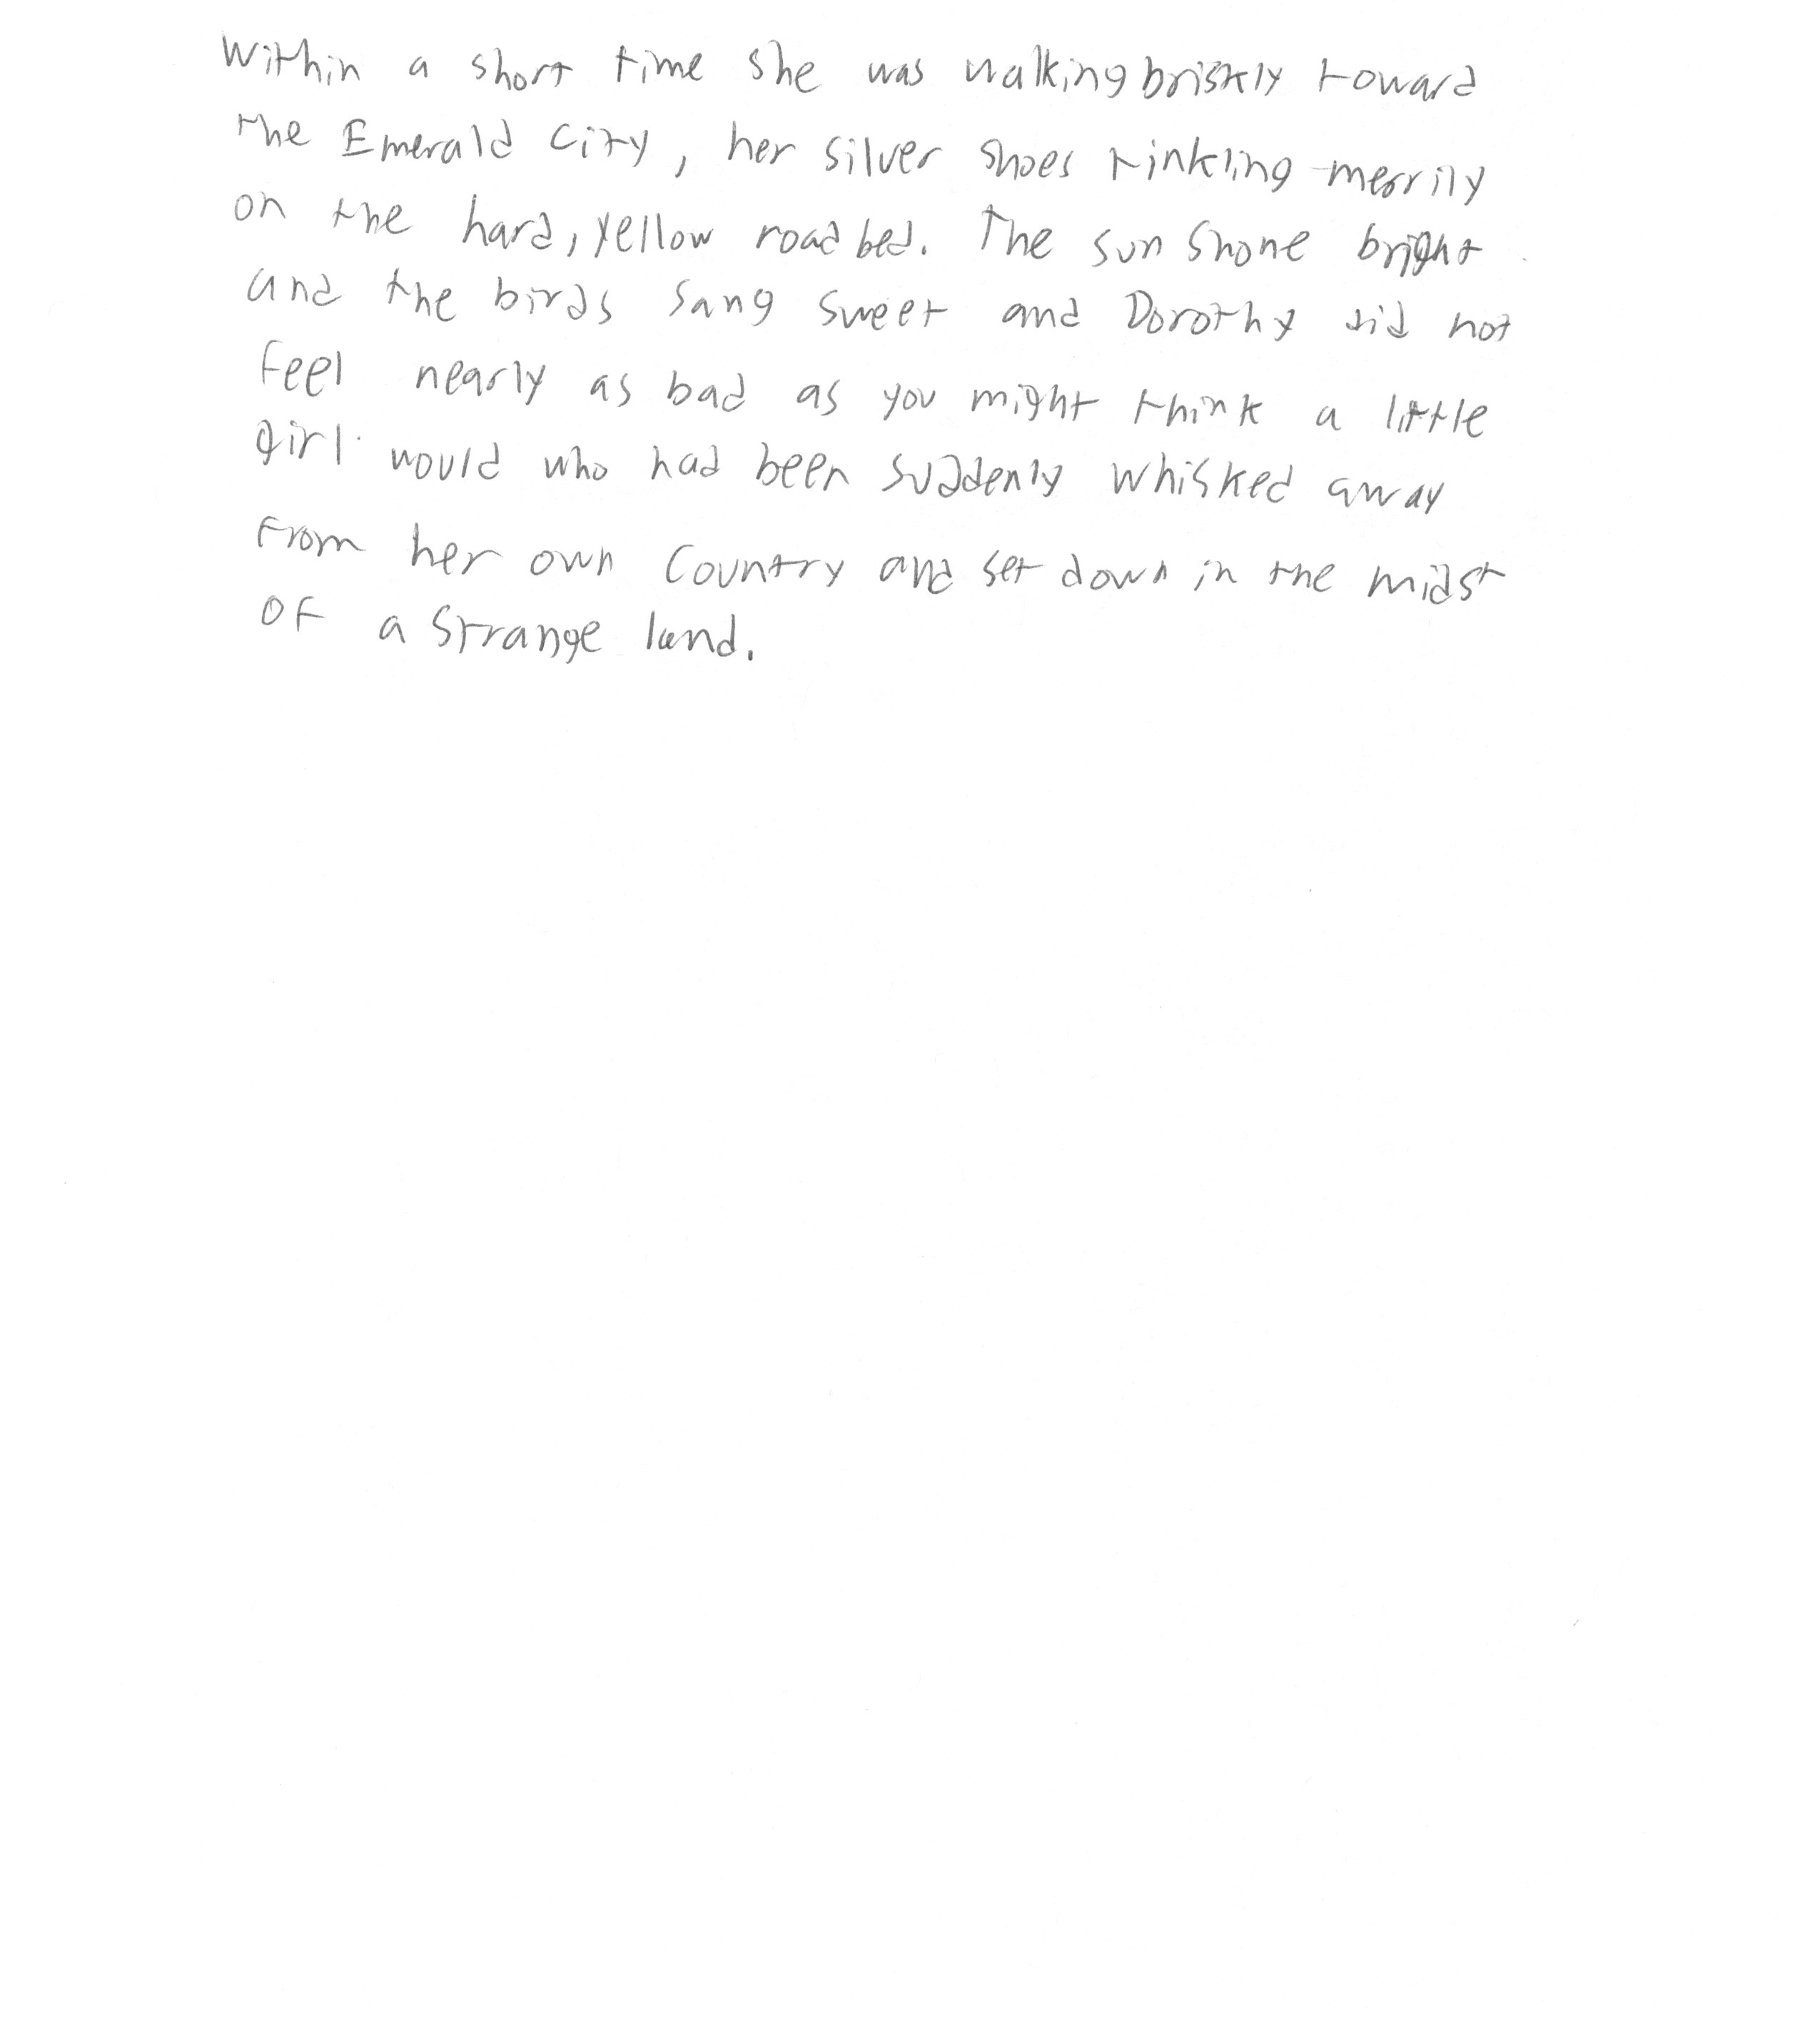 Within a short time she was walking briskly toward
the Emerald City, her silver shoes tinkling merrily
on the hard, yellow road bed. The sun shone bright
and the birds sang sweet and Dorothy did not
feel nearly as bad as you might think a little
girl would who had been suddenly whisked away
from her own country and set down in the midst
of a strange land.